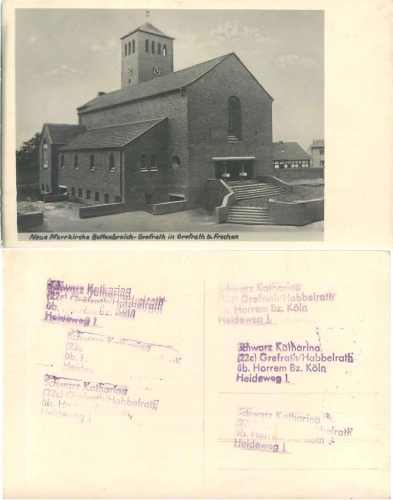 Neue Pfarrkirche Bottenbroich-Grefrath in Grefrath b. Frechen
Schwarz Katharina
(22c) Grefrath/Habbelrath
üb. Horrem Bz. Köln
Heideweg 1
Schwarz Katharina
(22c)
üb. H
Schwarz Katharina
(22c) Grefrath/Habbelrath
üb. Horrem
Heideweg 1
Schwarz Katharina
(22c) Grefrath/Habbelrath
üb. Horrem Bz. Köln
Heideweg 1
Schwarz Katharina
(22c) Grefrath/Habbelrath
üb. Horrem Bz. Köln
Heideweg 1
Schwarz Katharina
üb. Horrem
Heideweg 1